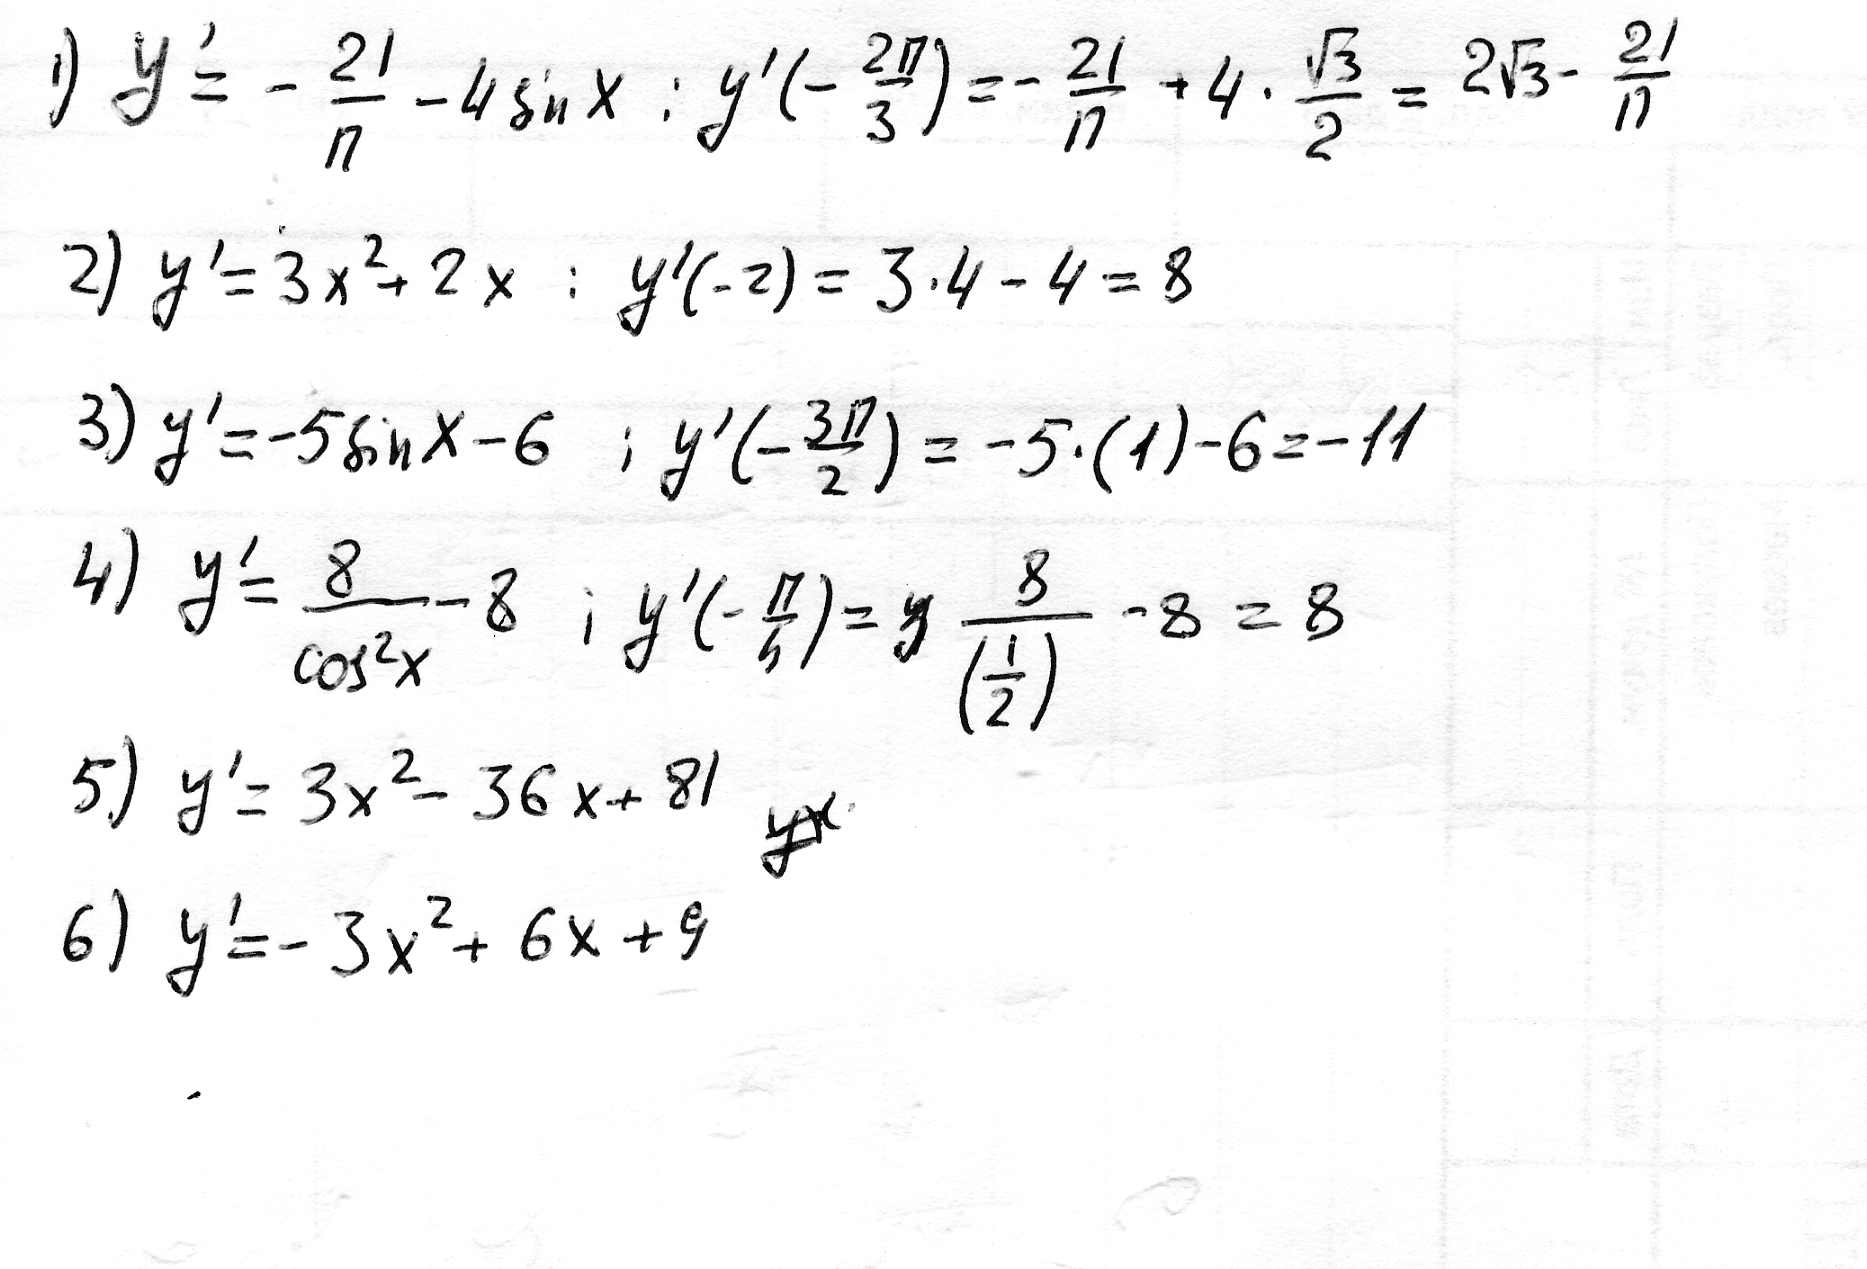 1) y' = - 21/π - 4 sin x ; y'(- 2π/3) = - 21/π + 4 · √3/2 = 2√3 - 21/π
2) y' = 3x² + 2x ; y'(-2) = 3·4 - 4 = 8
3) y' = -5 sin x - 6 ; y'(- 3π/2) = -5·(1) - 6 = -11
4) y' = 8/cos²x - 8 ; y'(- π/4) = 8/(1/2) - 8 = 8
5) y' = 3x² - 36x + 81
6) y' = - 3x² + 6x + 9